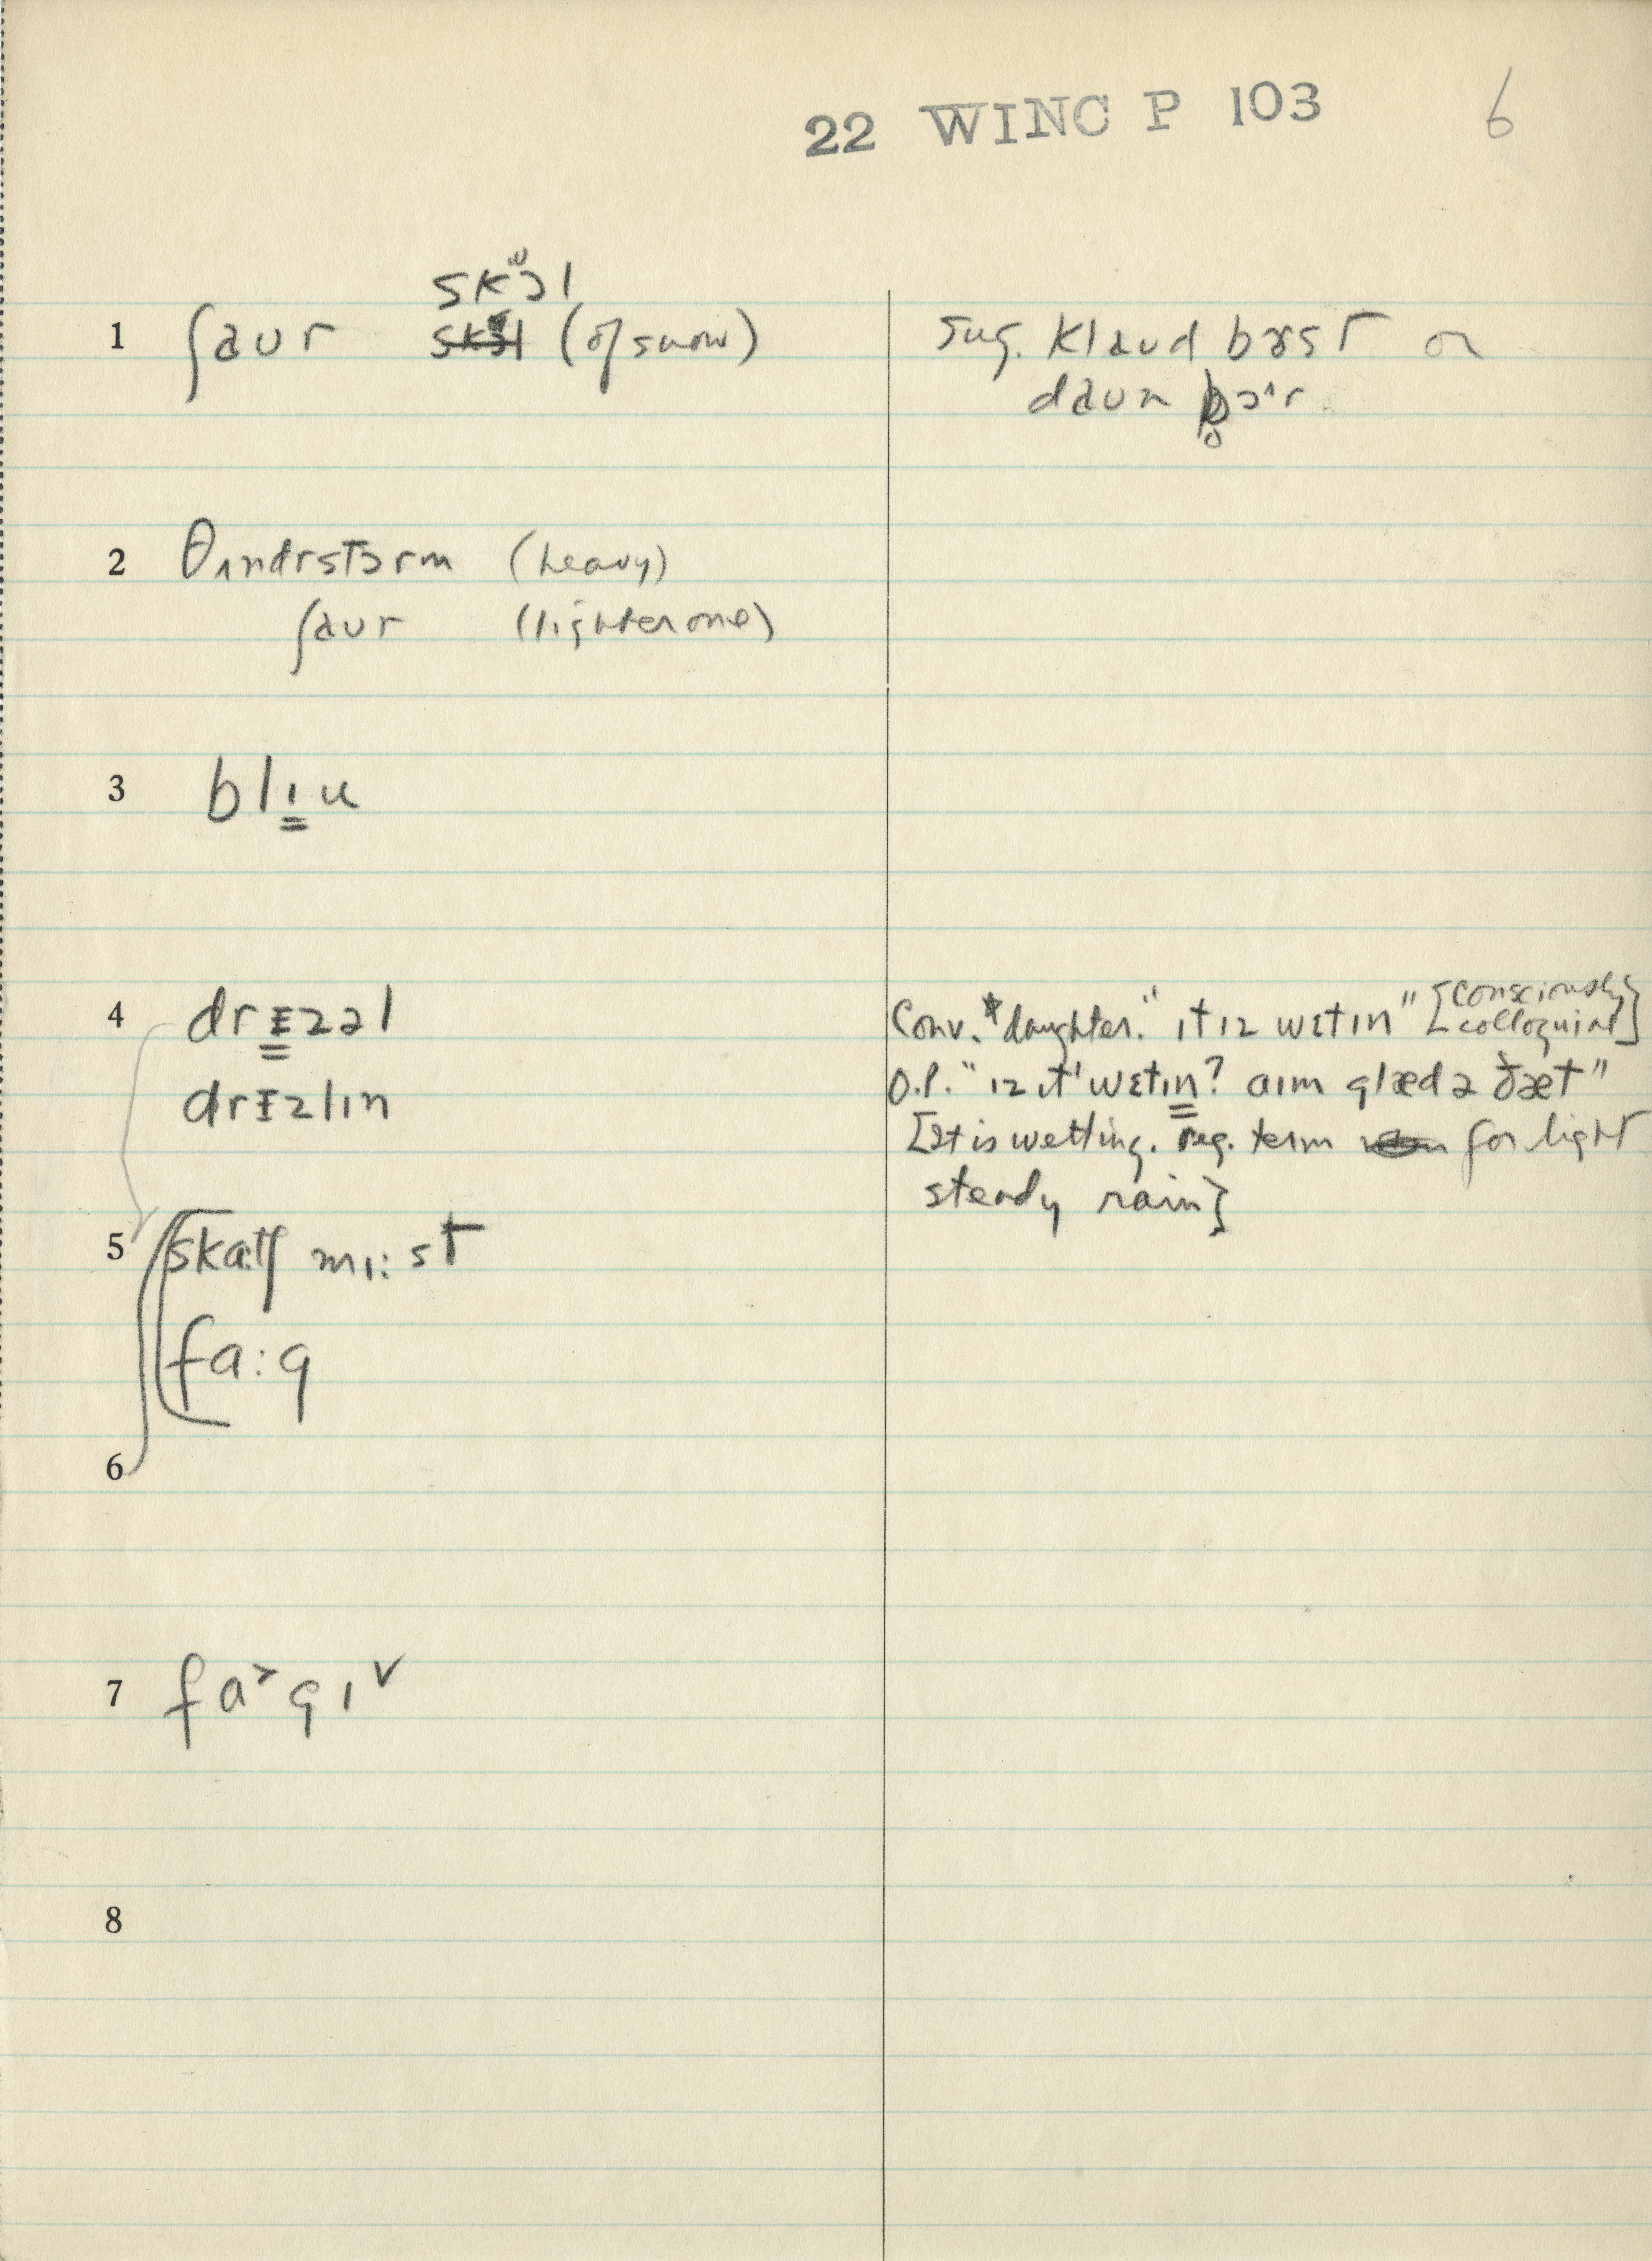 22 WINC P 103 6
skʷɔl
1 ʃaur (of snow) Sug. klaud bɜst or
daun pɔ^r
2 θʌndrstɔrm (heavy)
ʃaur (lighter one)
3 blɪu
4 drɪzəl Conv. daughter. "ɪt ɪz wɛtɪn" [consciously colloquial]
drɪzlɪn O.P. "ɪz ɪt wɛtɪn? aɪm glæd ə ðæt"
[It is wetting. reg. term for light
steady rain]
5 skatʃ mɪ:st
fa:g
6
7 fa˃gɪ˅
8